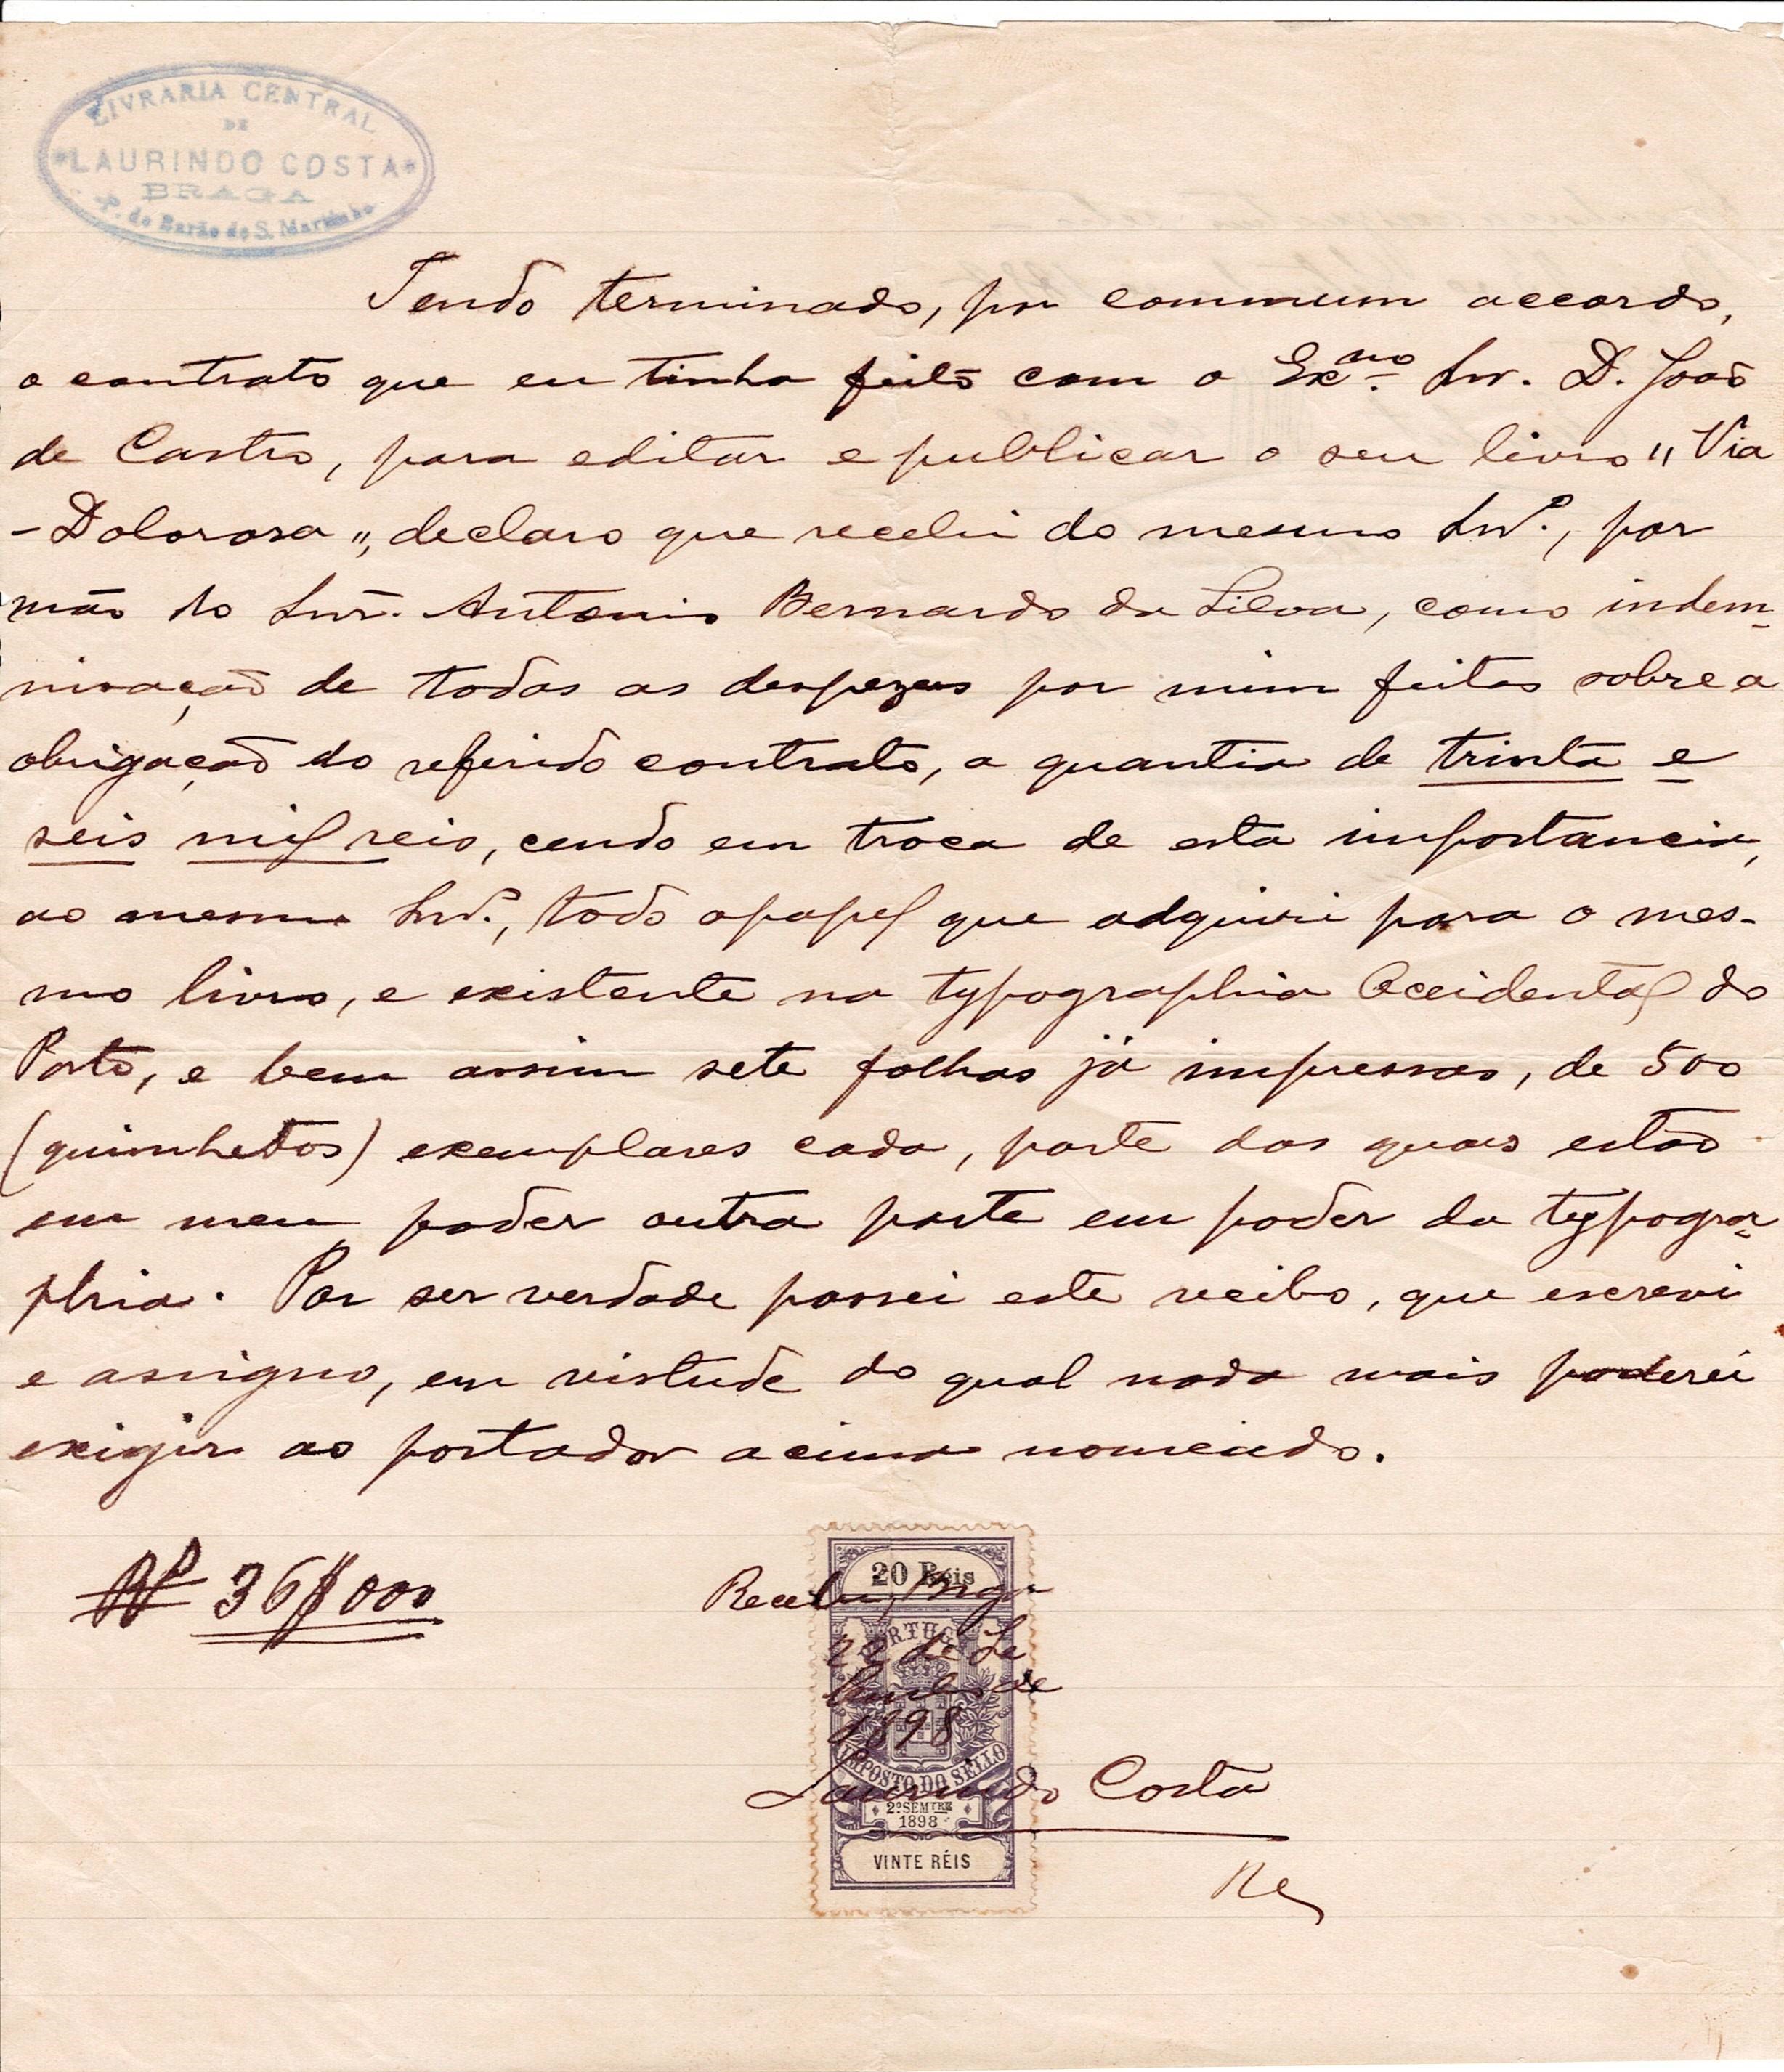 LIVRARIA CENTRAL
DE
*LAURINDO COSTA*
BRAGA
P. do Barão de S. Martinho
Tendo terminado, por commum accordo,
o contrato que eu tinha feito com o Exmo. Snr. D. João
de Castro, para editar e publicar o seu livro "Via
-Dolorosa", declaro que recebi do mesmo Snr., por
mão do Snr. Antonio Bernardo da Silva, como indem-
nisação de todas as despezas por mim feitas sobre a
obrigação do referido contrato, a quantia de trinta e
seis mil reis, cendo em troca de esta importancia,
ao mesmo Snr., todo o papel que adquiri para o mes-
mo livro, e existente na typographia Occidental do
Porto, e bem assim sete folhas já impressas, de 500
(quinhetos) exemplares cada, parte das quaes estão
em meu poder outra parte em poder da typogra-
phia. Por ser verdade passei este recibo, que escrevi
e assigno, em virtude do qual nada mais poderei
exigir ao portador acima nomeado.
Rs 36$000
20 Réis
Recebi, Braga
PORTUGAL
22 de Se
tembro de
1898
IMPOSTO DO SELLO
Laurindo Costa
2º SEMTRE
1898
VINTE RÉIS